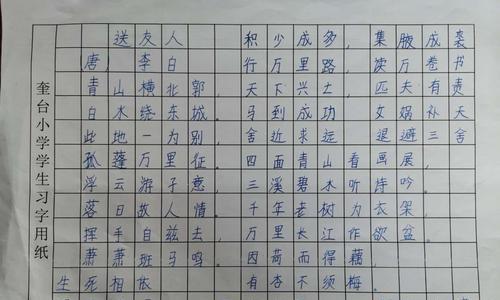 奎台小学学生习字用纸
送友人 积少成多，集腋成裘
唐，李白 行万里路，读万卷书
青山横北郭 天下兴亡，匹夫有责
白水绕东城。马到成功 女娲补天
此地一为别 舍近求远 退避三舍
孤蓬万里征。四面青山看画展，
浮云游子意，三溪碧水听诗吟。
落日故人情。千年老树为衣架，
挥手自兹去，万里长江作欲盆。
萧萧班马鸣。因荷而得藕，
生死相依 有杏不须梅。